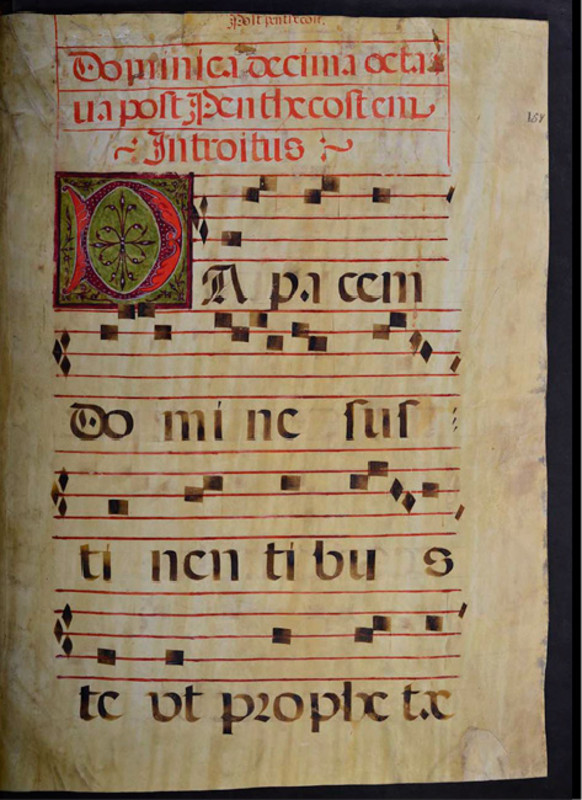 Post pentecost.
Dominica decima octa
ua post Penthecostem
Introitus
158
DA pa cem
Do mi ne sus
ti nen ti bu s
te ut prophe tæ